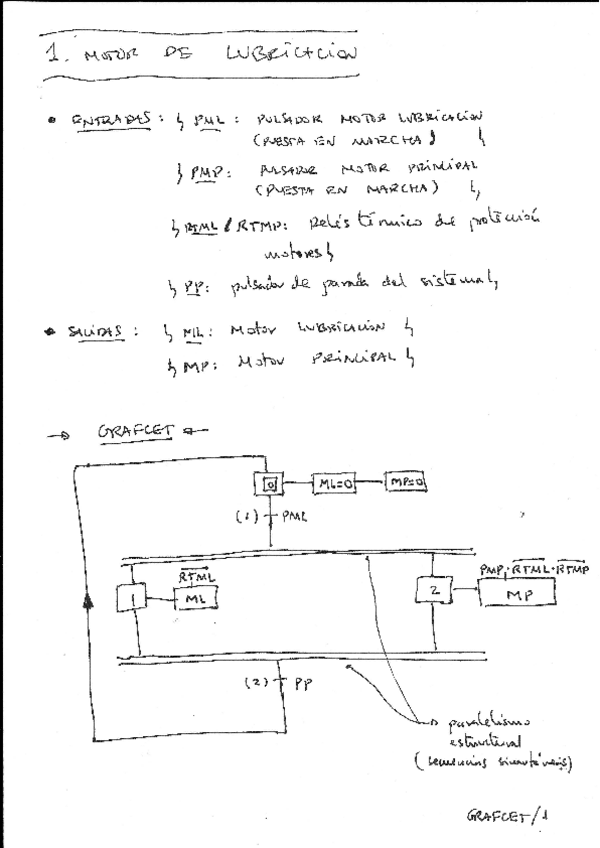 1. MOTOR DE LUBRICACION
• ENTRADAS: ↳ PML: PULSADOR MOTOR LUBRICACIÓN
(PUESTA EN MARCHA) ↳
↳ PMP: PULSADOR MOTOR PRINCIPAL
(PUESTA EN MARCHA) ↳
↳ RTML / RTMP: Relés térmico de protección
motores ↳
↳ PP: pulsador de parada del sistema ↳
• SALIDAS: ↳ ML: Motor LUBRICACIÓN ↳
↳ MP: Motor PRINCIPAL ↳
→ GRAFCET ←
0 ML=0 MP=0
(1) PML
RTML
PMP·RTML·RTMP
1 ML
2 MP
(2) PP
paralelismo
estructural
(secuencias simultáneas)
GRAFCET/1